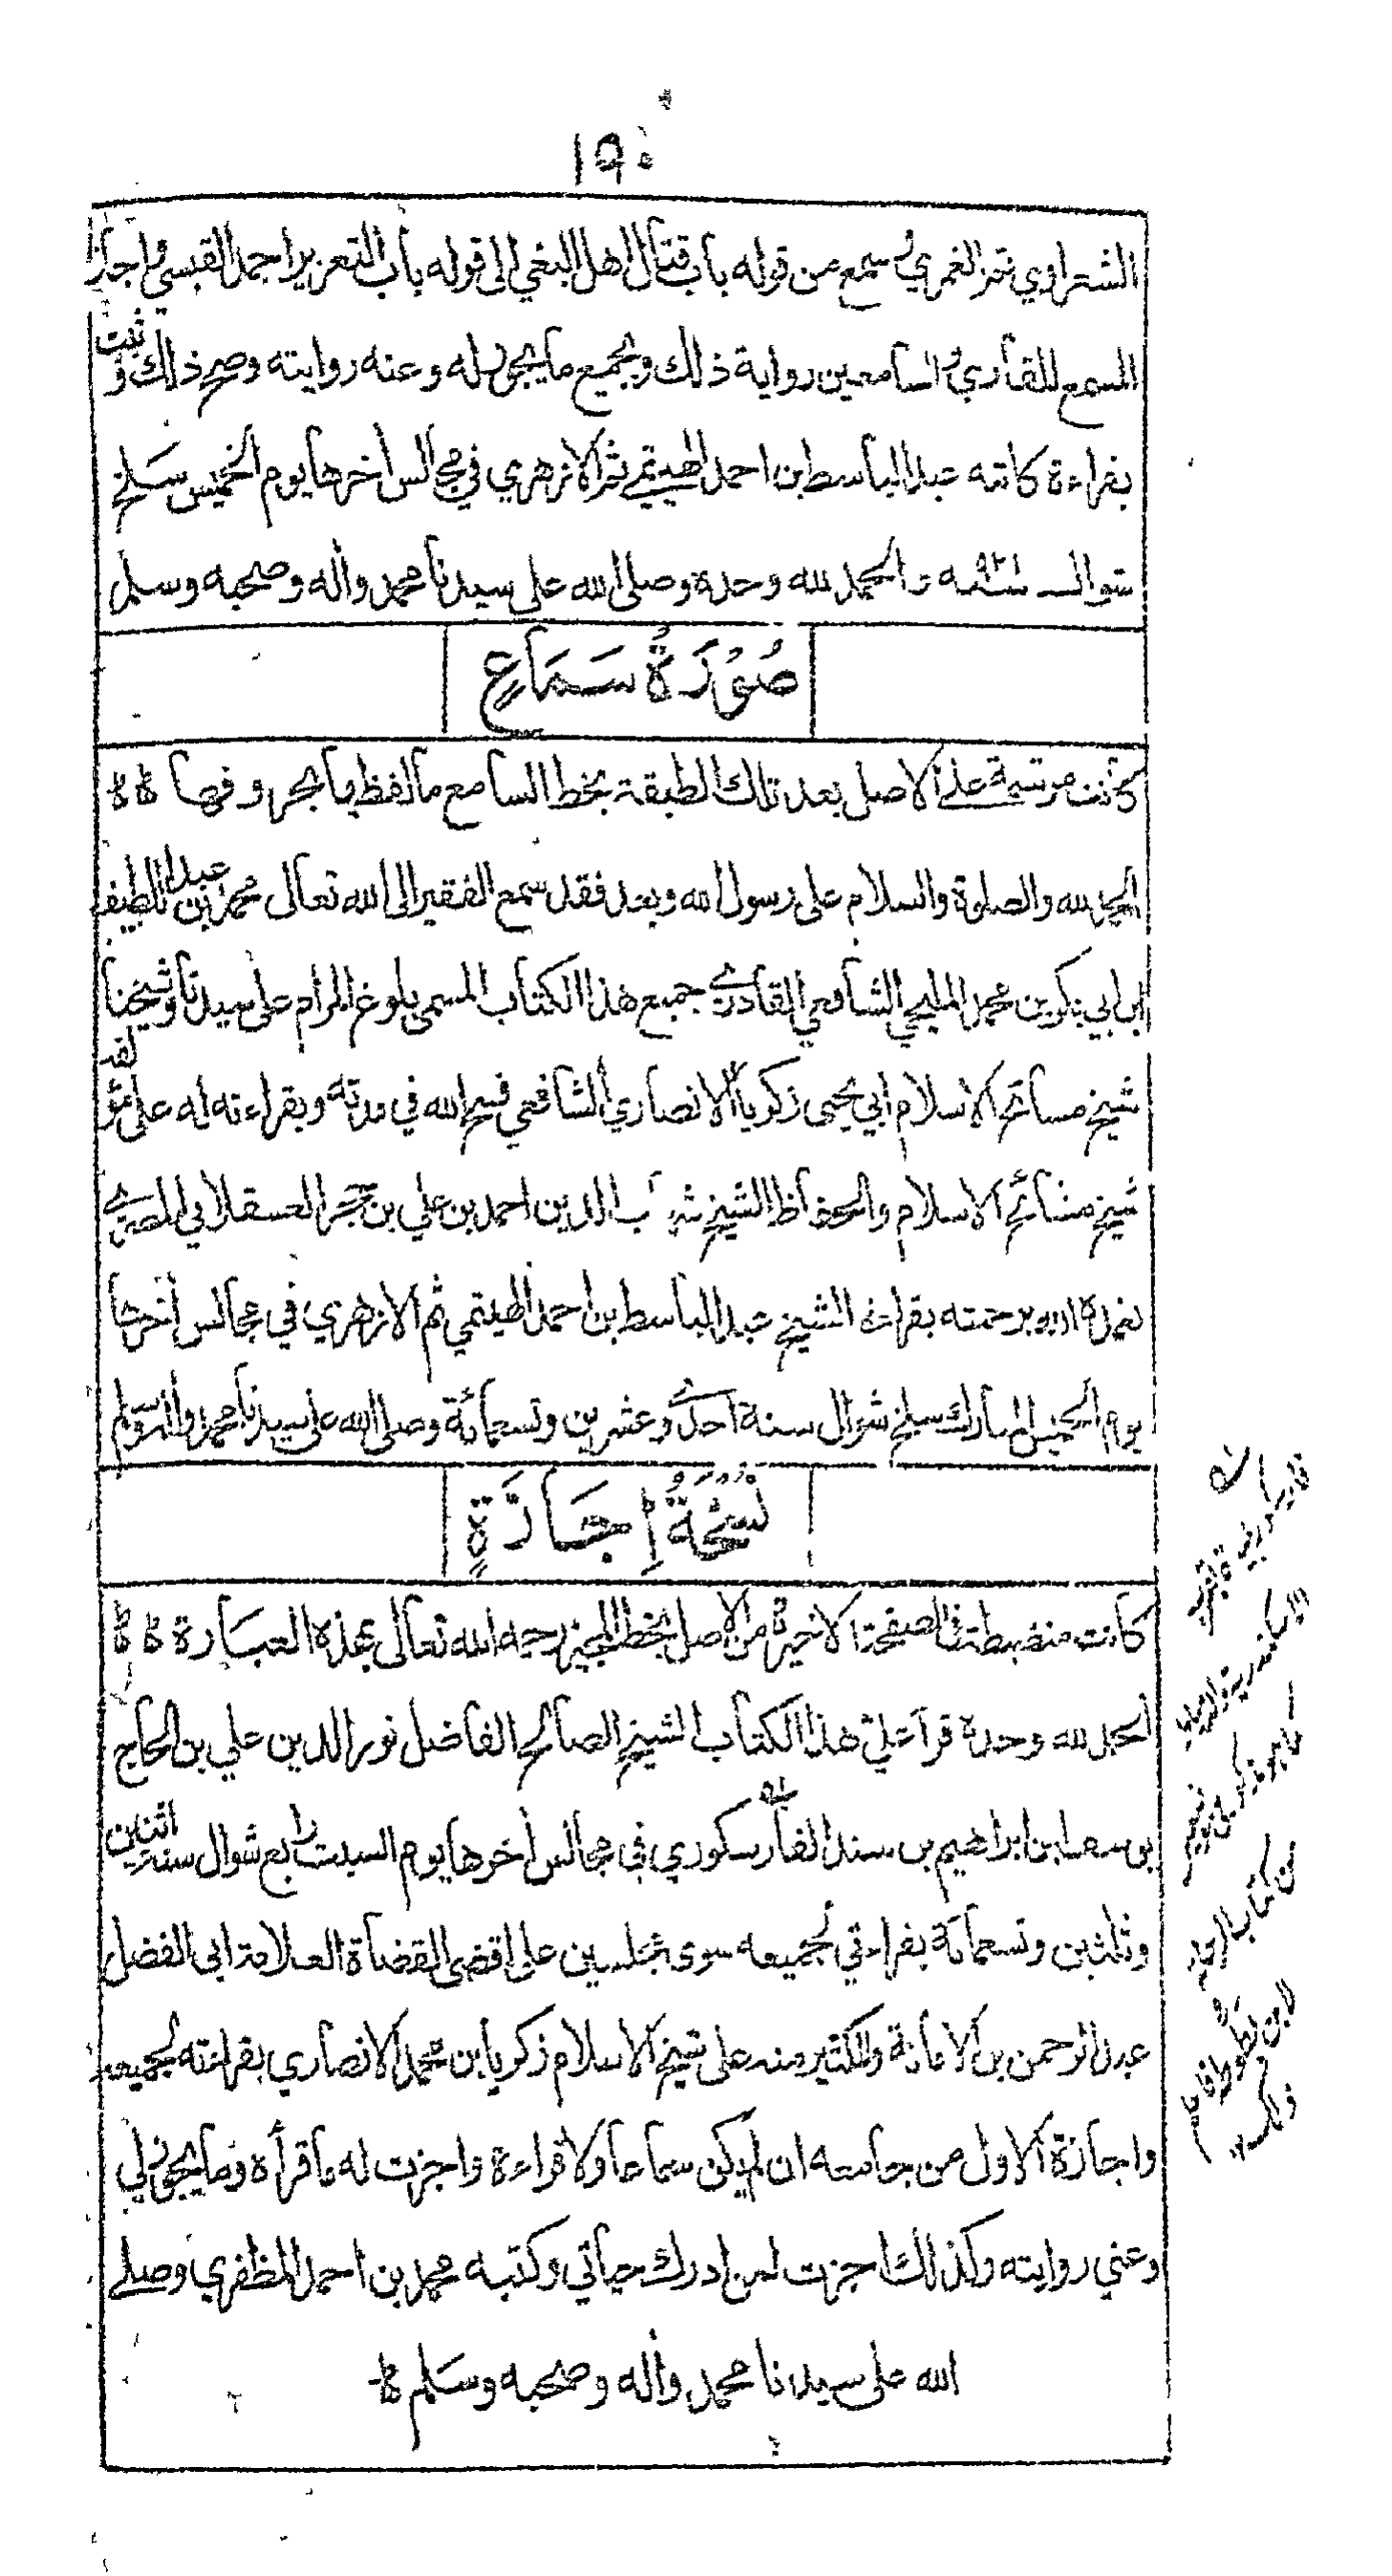 ١٩٠
الشعراوي ثم الغمري سمع من قوله باب قتال اهل البغي الى قوله باب التعزير احمد القبسي واجاز
المسمع للقاري والسامعين رواية ذلك وبجميع ما يجوز له وعنه روايته وصح ذلك وثبت
بقراءة كاتبه عبد الباسط بن احمد الهيتمي ثم الازهري في مجالس اخرها يوم الخميس سلخ
شوال سنة ٩٢١ والحمد لله وحده وصلى الله على سيدنا محمد واله وصحبه وسلم
صُوْرَةُ سَمَاعٍ
كانت مرتسمة على الاصل بعد تلك الطبقة بخط السامع ما لفظها بحروفها
الحمد لله والصلوة والسلام على رسول الله وبعد فقد سمع الفقير الى الله تعالى محمد بن عبد اللطيف
ابن ابي بكر بن محمد المليجي الشافعي القادري جميع هذا الكتاب المسمى بلوغ المرام على سيدنا وشيخنا
شيخ مسائخ الاسلام ابي يحيى زكريا الانصاري الشافعي فسح الله في مدته وبقراءته له على مؤلفه
شيخ مشائخ الاسلام والحفاظ الشيخ شهاب الدين احمد بن علي بن حجر العسقلاني المصري
تغمده الله برحمته بقراءة الشيخ عبد الباسط بن احمد الهيتمي ثم الازهري في مجالس اخرها
يوم الخميس المبارك سلخ شوال سنة احدى وعشرين وتسعمائة وصلى الله على سيدنا محمد واله وسلم
نُسْخَةُ اِجَازَةٍ
كانت منضبطة في الصفحة الاخيرة من الاصل بخط المجيز رحمه الله تعالى بهذه العبارة
الحمد لله وحده قرأ علي هذا الكتاب الشيخ الصالح الفاضل نور الدين علي بن الحاج
بن سعد ابن ابراهيم بن سند الفارسكوري في مجالس اخرها يوم السبت رابع شوال سنة اثنين
وثلثين وتسعمائة بقراءتي لجميعه سوى مجلسين على اقضى القضاة العلامة ابي الفضل
عبد الرحمن بن الامانة والكثير منه على شيخ الاسلام زكريا بن محمد الانصاري بقراءته لجميعه
واجازة الاول من جامعه ان لم يكن سماعا ولا قراءة واجزت له ما قرأه وما يجوز لي
وعني روايته وكذلك اجزت لمن ادرك حياتي وكتبه محمد بن احمد المظفري وصلى
الله على سيدنا محمد واله وصحبه وسلم